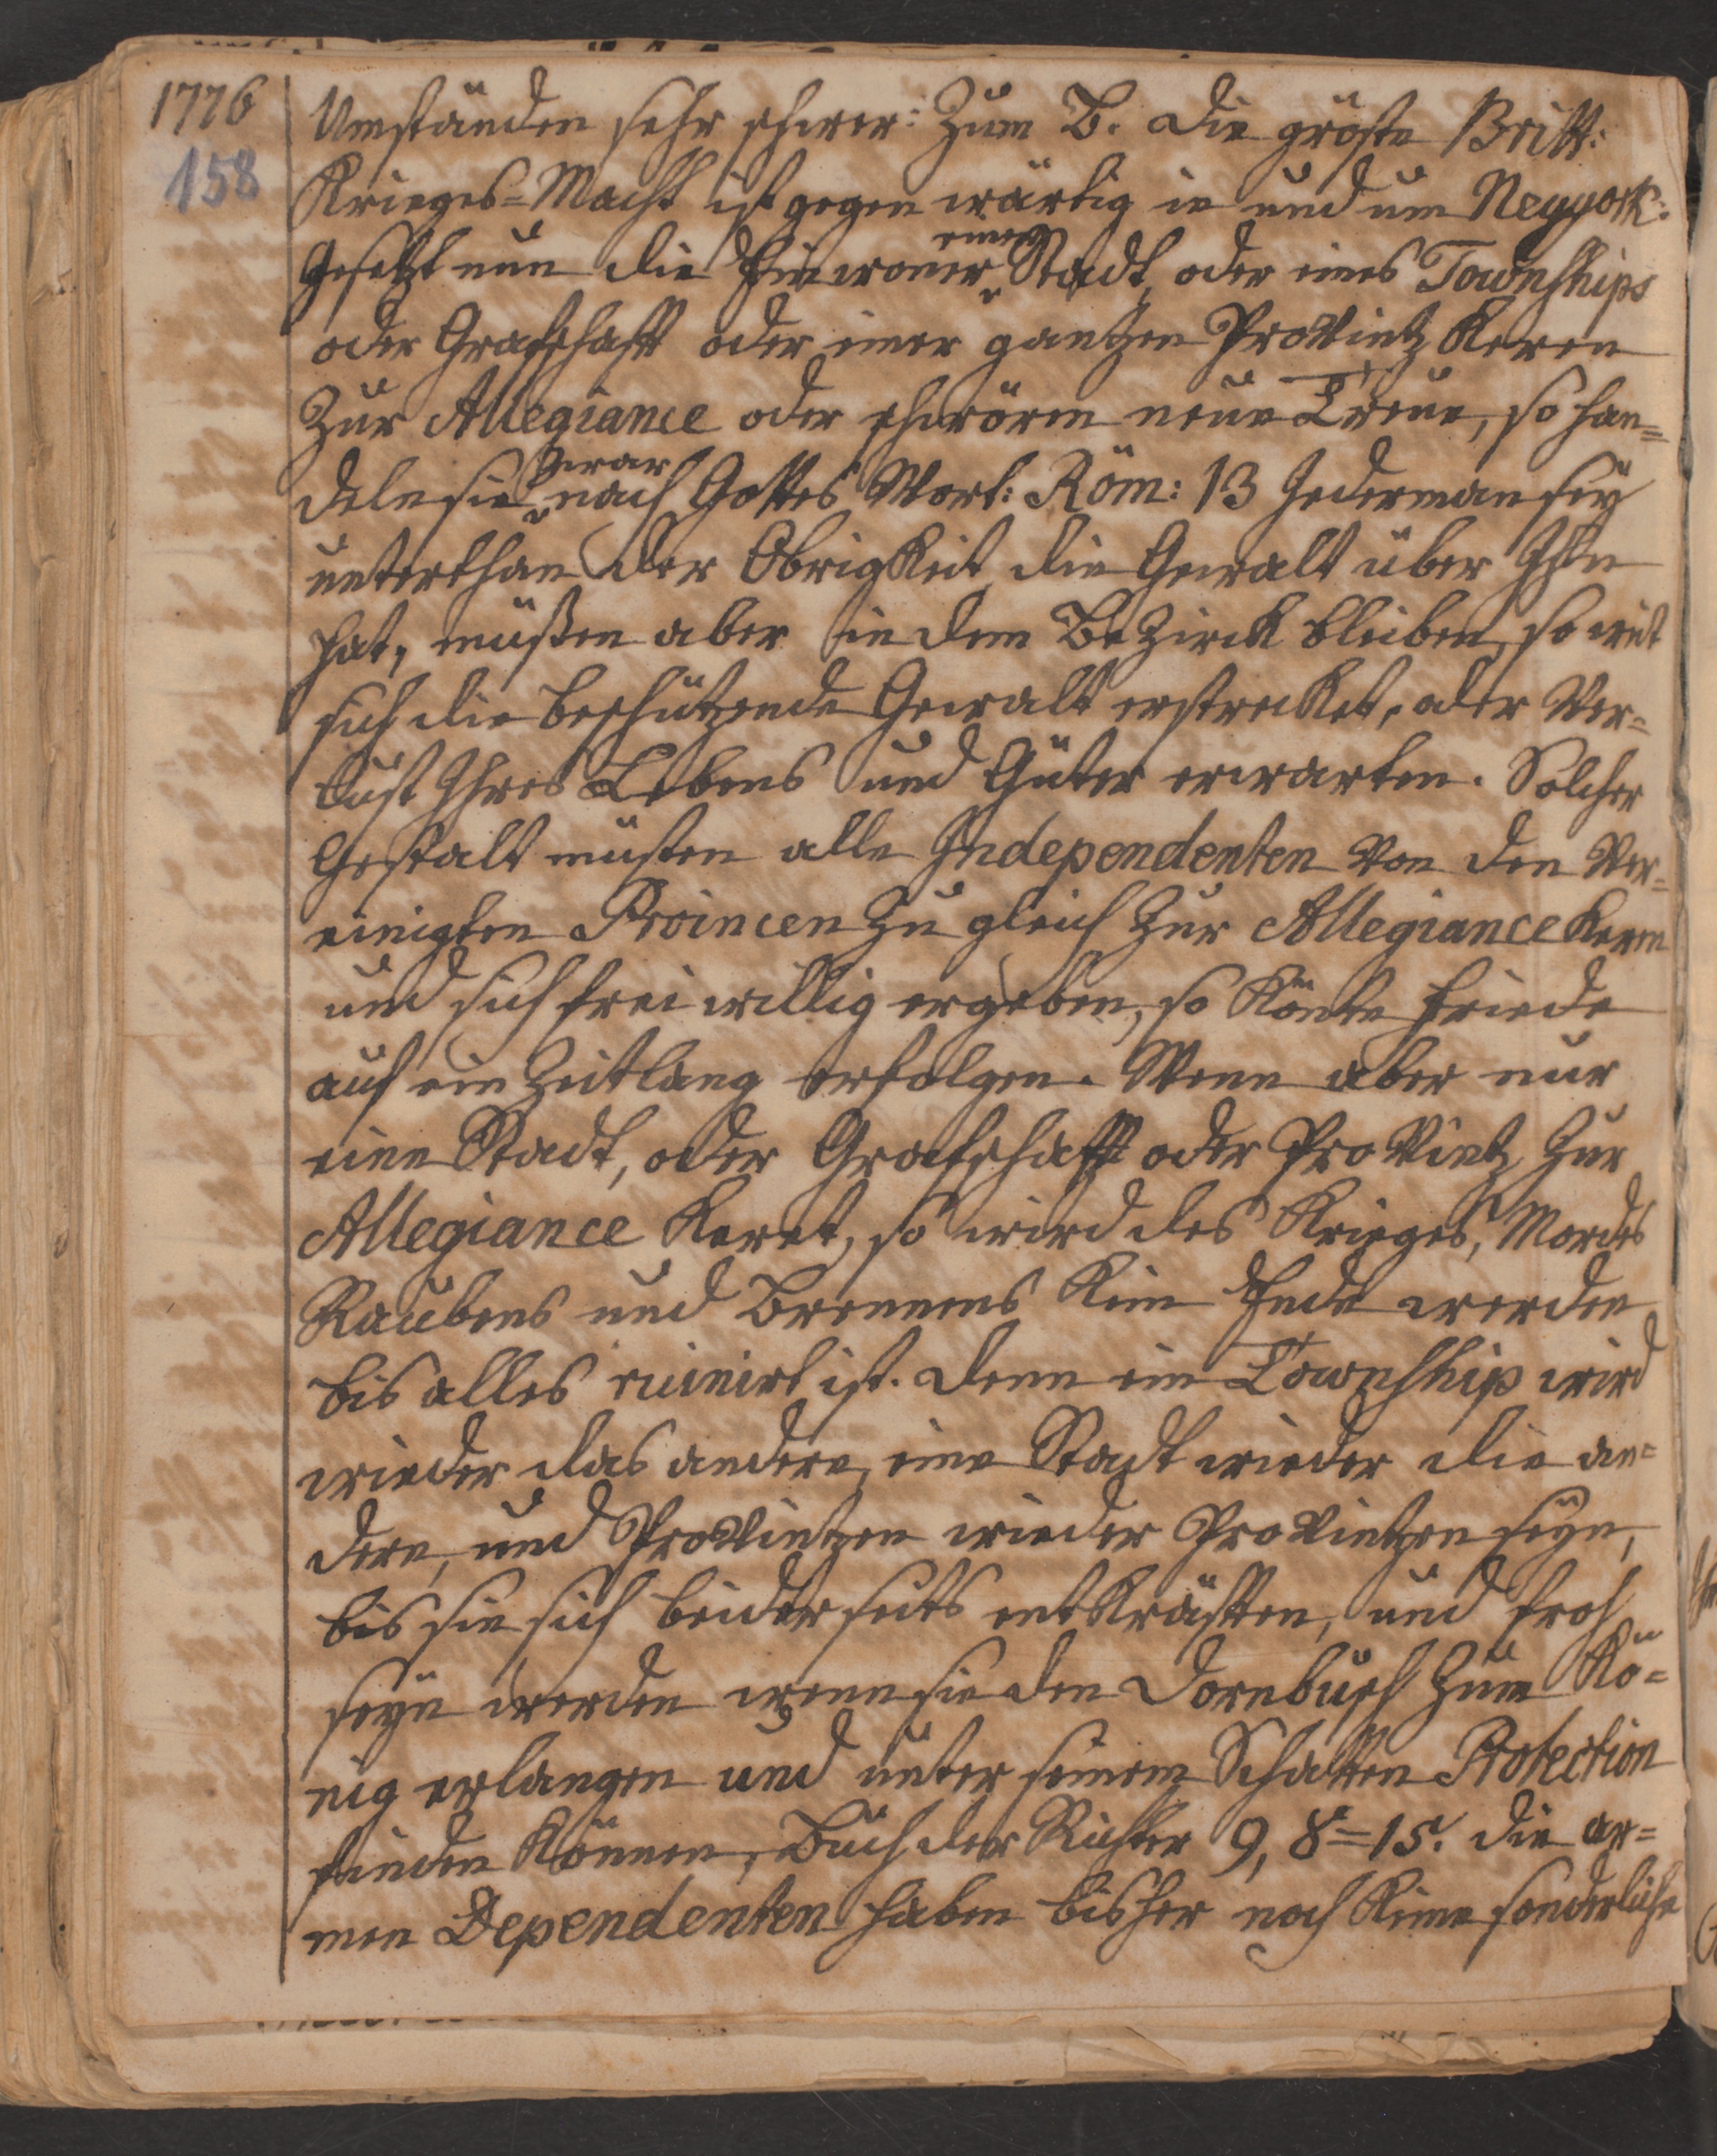 1776
158
Umständen sehr schwer: Zum B. die gröste Britt:
Krieges=Macht ist gegen wärtig in und um Neuyork:
Gesetzt nun die Einwoner einer Stadt, oder eines Townships
oder Grafschafft oder einer gantzen Provintz keren
zur Allegiance oder schwören neue Treue, so han=
deln sie zwar nach Gottes Wort: Röm: 13 Jederman sey
unterthan der Obrigkeit die Gewalt über Ihn
hat, müßen aber in dem Bezirck bleiben, so weit
sich die beschützende Gewalt erstrecket, oder Ver=
lust Ihres Lebens und Güter erwarten. Solcher
Gestalt müsten alle Independenten von den Ver=
einigten Provincen zu gleich zur Allegiance keren
und sich frei willig ergeben, so könte Friede
auf ein Zeitlang erfolgen. Wenn aber nur
eine Stadt, oder Grafschafft oder Provintz zur
Allegiance keret, so wird des Krieges, Mordes
Raubens und Brennens kein Ende werden
bis alles ruinirt ist. denn ein Township wird
wieder das andere, eine Stadt wieder die an=
dere, und Provintzen wieder Provintzen seyn,
bis sie sich beiderseits entkräfften, und froh
seyn werden wenn sie den Dornbusch zum Kö=
nig erlangen und unter seinem Schatten Protection
finden können, Buch der Richter 9, 8=15. die ar=
men Dependenten haben bisher noch keine sonderliche